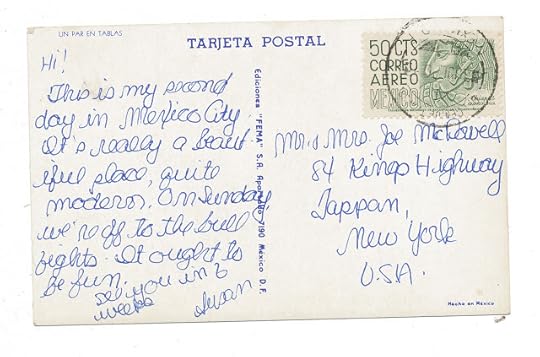 UN PAR EN TABLAS
TARJETA POSTAL
Hi!
This is my second
day in Mexico City.
It's really a beaut
iful place, quite
modern. On Sunday
we're off to the bull
fights. It ought to
be fun.
see you in 2
weeks
Susan
Ediciones "FEMA" S.R. Apartado 7190 México D.F.
50 CTS
CORREO
AEREO
MEXICO
Mr. & Mrs. Joe McDowell
84 Kings Highway
Tappan,
New York
U.S.A.
Hecho en México